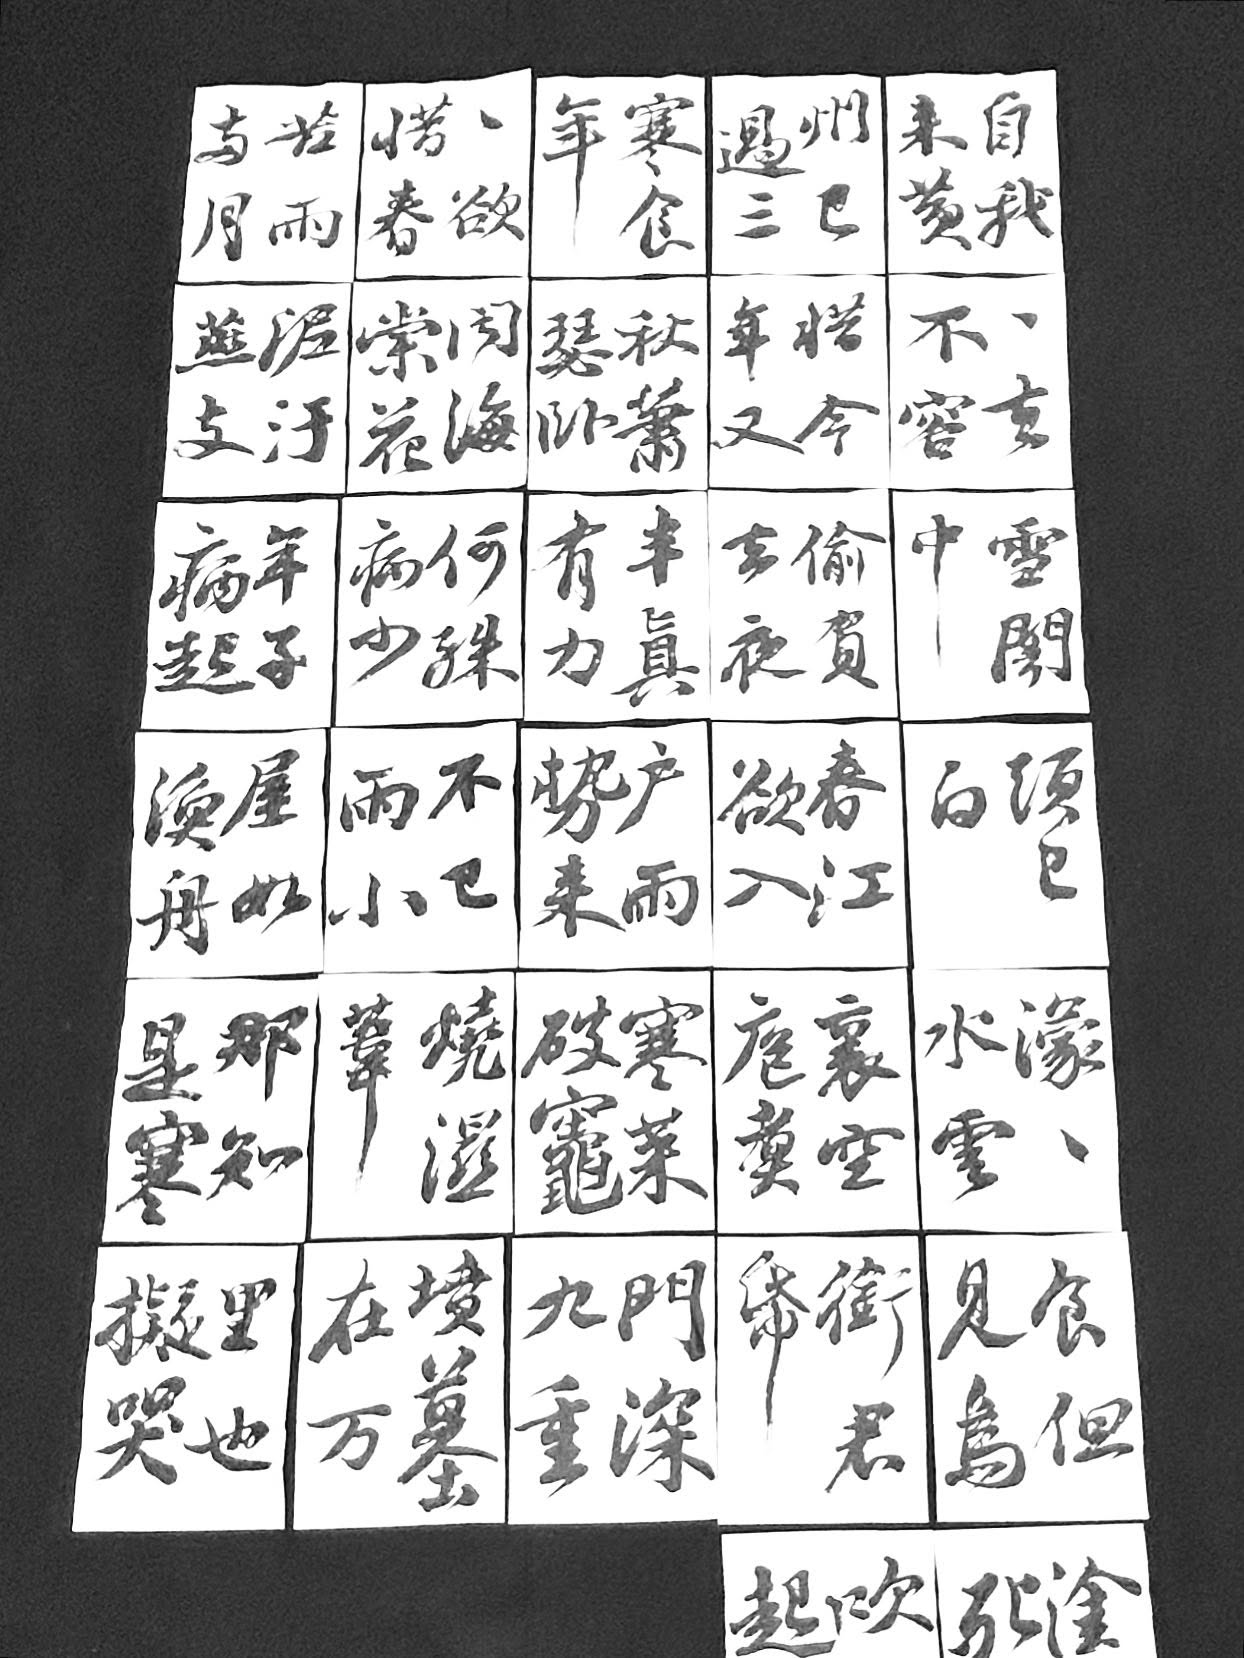 自我
来黄
州已
過三
寒食
年
丶欲
惜春
苦雨
两月
丶去
不容
惜今
年又
秋蕭
瑟卧
聞海
棠花
泥汙
燕支
雪闇
中
偷負
去夜
半真
有力
何殊
病少
年子
病起
須已
白
春江
欲入
户雨
势来
不已
雨小
屋如
漁舟
濛丶
水雲
裏空
庖煮
寒菜
破竈
燒濕
葦
那知
是寒
食但
見烏
銜君
帋
門深
九重
墳墓
在万
里也
擬哭
塗
死
吹
起